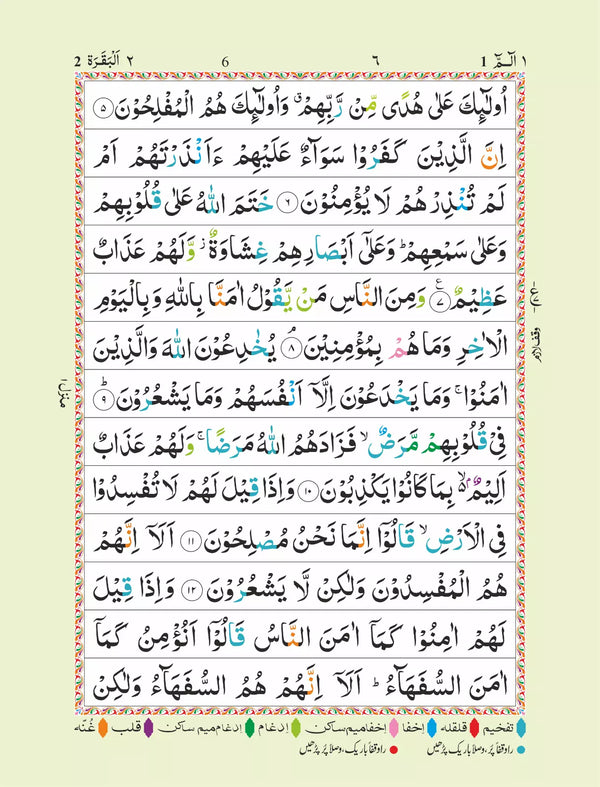 ١ الٓـمّٓ 1 ٦ 6 ٢ اَلْبَقَرَة 2
اُولٰٓئِكَ عَلٰى هُدًى مِّنْ رَّبِّهِمْ ۙ وَاُولٰٓئِكَ هُمُ الْمُفْلِحُوْنَ ﴿٥﴾
اِنَّ الَّذِيْنَ كَفَرُوْا سَوَآءٌ عَلَيْهِمْ ءَاَنْذَرْتَهُمْ اَمْ
لَمْ تُنْذِرْهُمْ لَا يُؤْمِنُوْنَ ﴿٦﴾ خَتَمَ اللّٰهُ عَلٰى قُلُوْبِهِمْ
وَعَلٰى سَمْعِهِمْ ؕ وَعَلٰٓى اَبْصَارِهِمْ غِشَاوَةٌ ؗ وَّلَهُمْ عَذَابٌ
عَظِيْمٌ ﴿٧﴾ وَمِنَ النَّاسِ مَنْ يَّقُوْلُ اٰمَنَّا بِاللّٰهِ وَبِالْيَوْمِ
الْاٰخِرِ وَمَا هُمْ بِمُؤْمِنِيْنَ ۘ ﴿٨﴾ يُخٰدِعُوْنَ اللّٰهَ وَالَّذِيْنَ
اٰمَنُوْا ۚ وَمَا يَخْدَعُوْنَ اِلَّآ اَنْفُسَهُمْ وَمَا يَشْعُرُوْنَ ؕ ﴿٩﴾
فِىْ قُلُوْبِهِمْ مَّرَضٌ ۙ فَزَادَهُمُ اللّٰهُ مَرَضًا ۚ وَلَهُمْ عَذَابٌ
اَلِيْمٌ ۢ ۙ بِمَا كَانُوْا يَكْذِبُوْنَ ﴿١٠﴾ وَاِذَا قِيْلَ لَهُمْ لَا تُفْسِدُوْا
فِى الْاَرْضِ ۙ قَالُوْٓا اِنَّمَا نَحْنُ مُصْلِحُوْنَ ﴿١١﴾ اَلَآ اِنَّهُمْ
هُمُ الْمُفْسِدُوْنَ وَلٰكِنْ لَّا يَشْعُرُوْنَ ﴿١٢﴾ وَاِذَا قِيْلَ
لَهُمْ اٰمِنُوْا كَمَآ اٰمَنَ النَّاسُ قَالُوْٓا اَنُؤْمِنُ كَمَآ
اٰمَنَ السُّفَهَآءُ ؕ اَلَآ اِنَّهُمْ هُمُ السُّفَهَآءُ وَلٰكِنْ
وقف لازم
منزل ١
تفخیم قلقله اِخفا اِخفا میم ساکن اِدغام اِدغام میم ساکن قلب غُنّه
راوقفاً پُر، وصلاً باریک پڑھیں راوقفاً باریک، وصلاً پُر پڑھیں